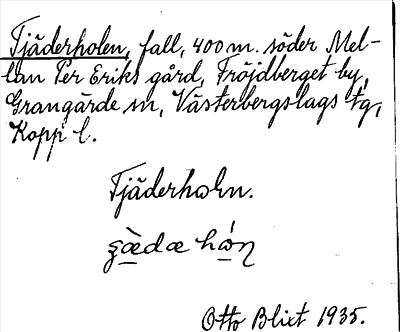 Tjäderholen, fall, 400 m. söder Mel-
lan Per Eriks gård, Fröjdberget by,
Grangärde sn, Västerbergslags tg,
Kopp l.
Tjäderholn.
Otto Blixt 1935.